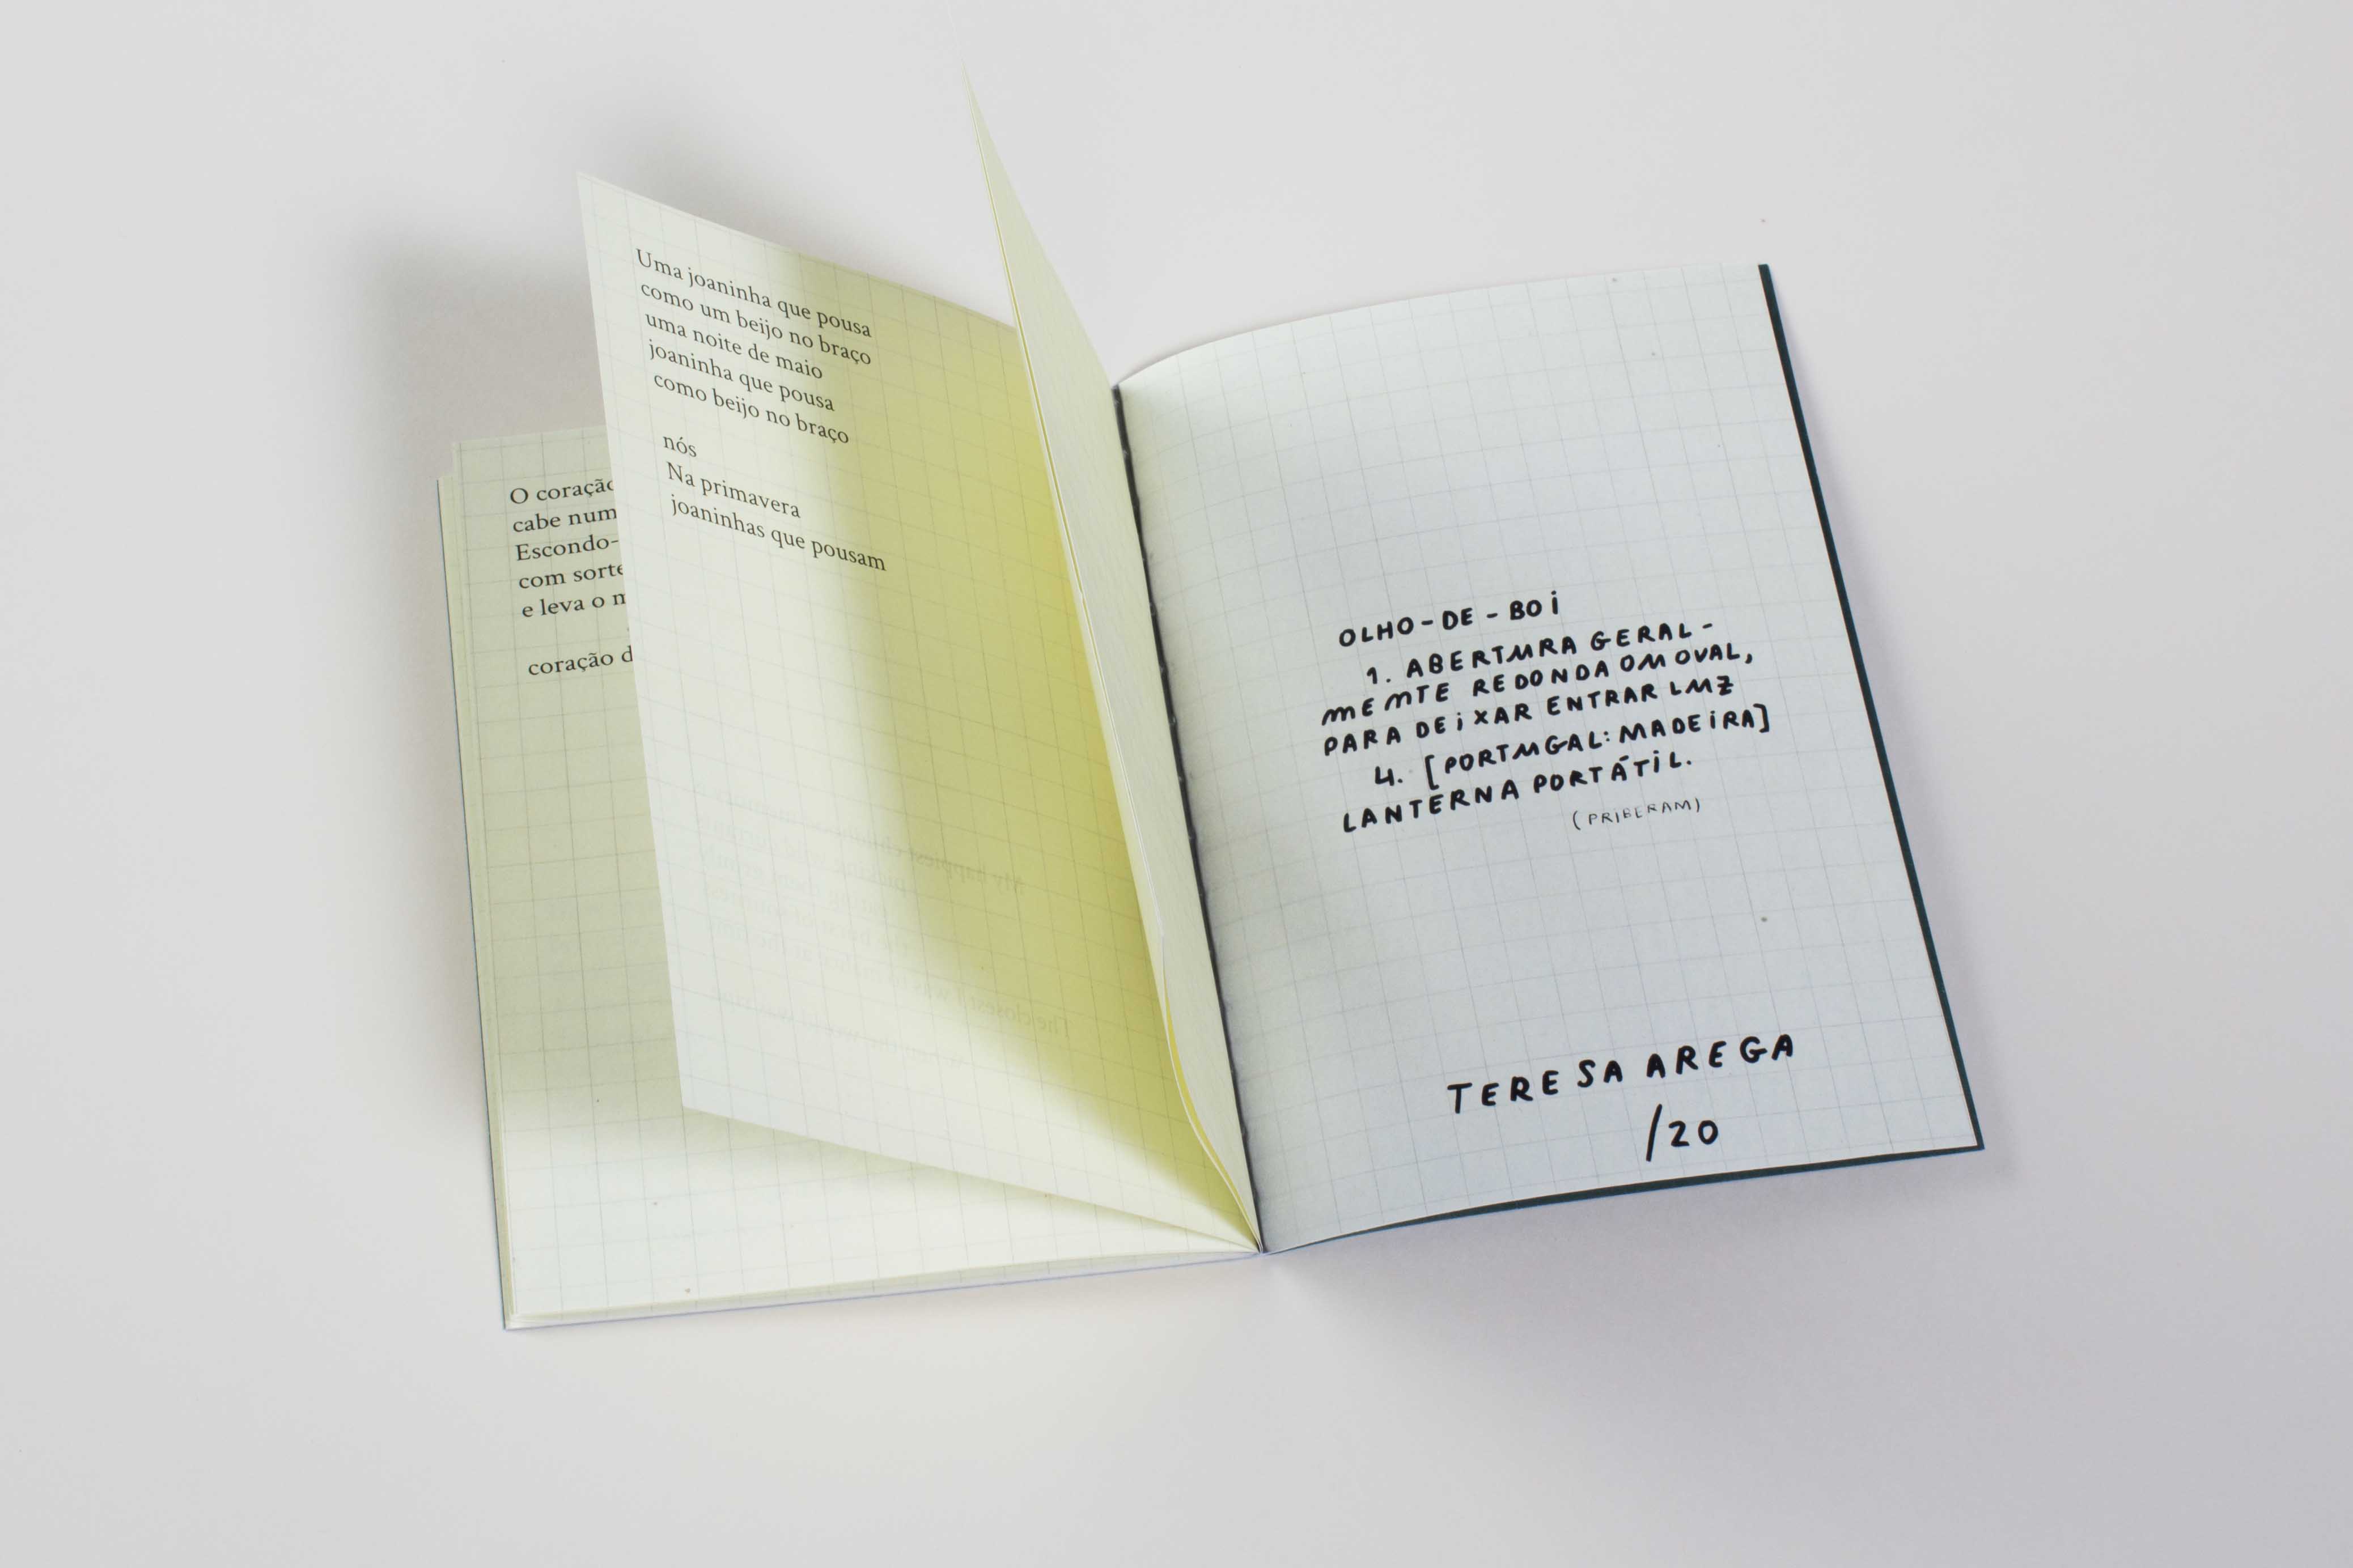 O coração
cabe num
Escondo-
com sorte
e leva o
coração
Uma joaninha que pousa
como um beijo no braço
uma noite de maio
joaninha que pousa
como beijo no braço
nós
Na primavera
joaninhas que pousam
OLHO-DE-BOI
1. ABERTURA GERAL-
MENTE REDONDA OU OVAL,
PARA DEIXAR ENTRAR LUZ
4. [PORTUGAL: MADEIRA]
LANTERNA PORTÁTIL.
(PRIBERAM)
TERESA AREGA
/20